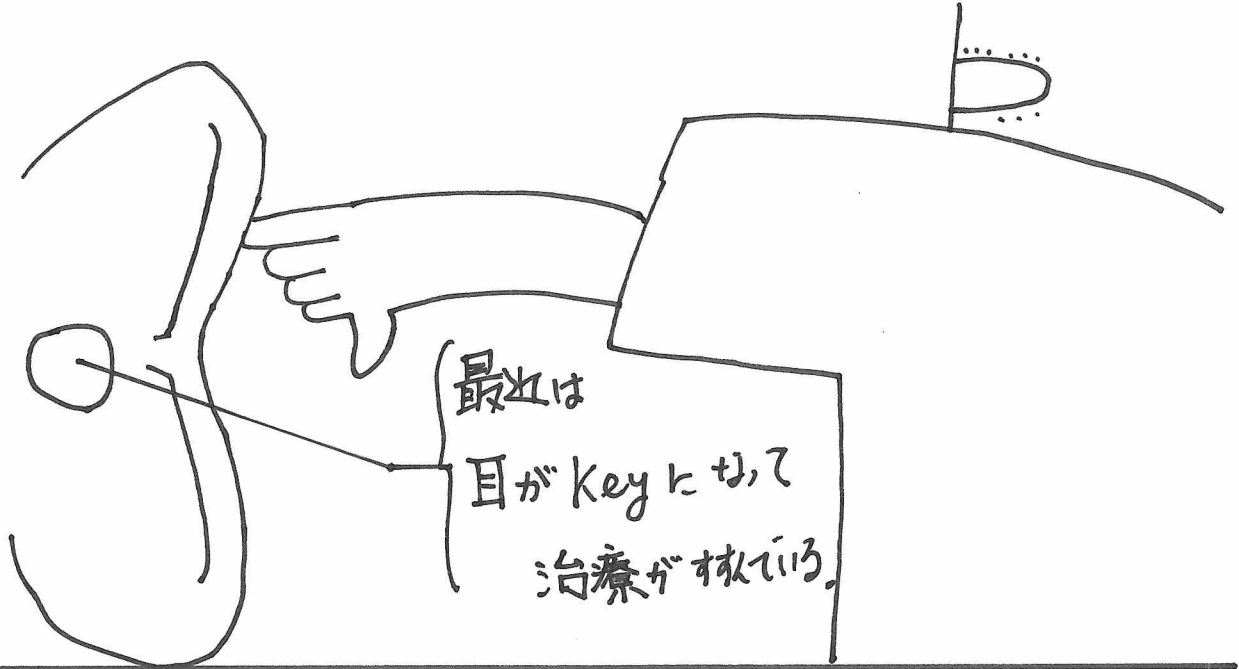 最近は
目がkeyになって
治療がすすんでいる。